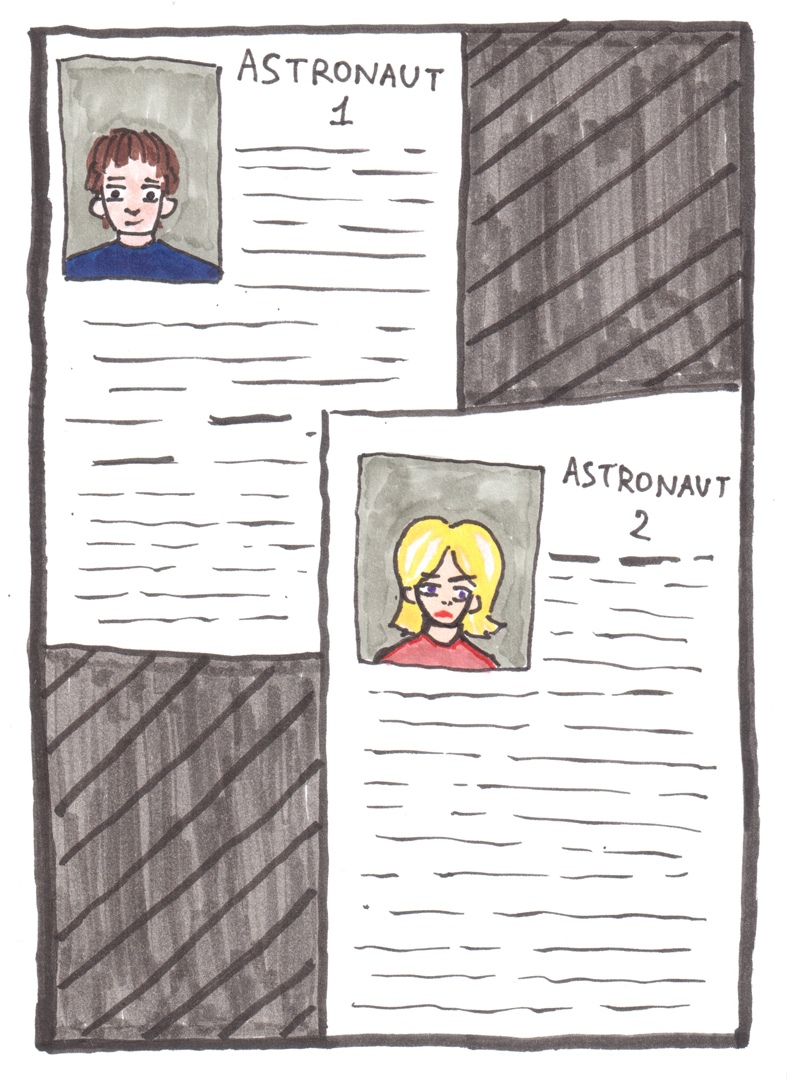 ASTRONAUT
1
ASTRONAUT
2